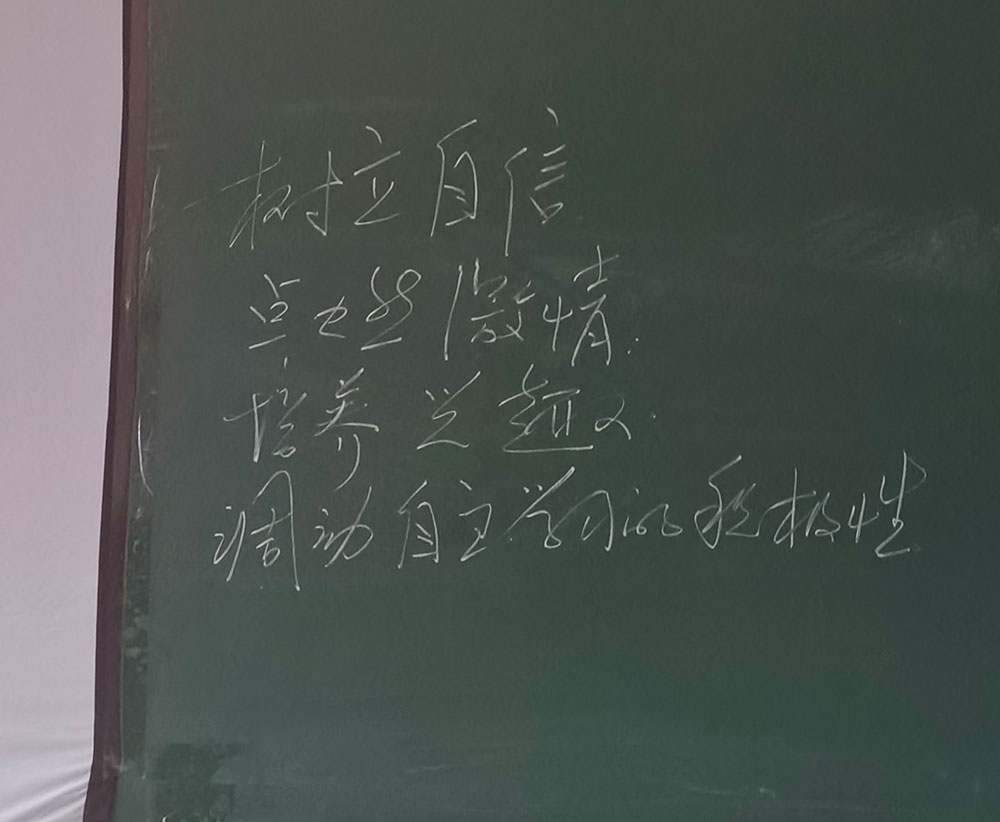 树立自信
点燃激情
培养兴趣
调动自主学习的积极性